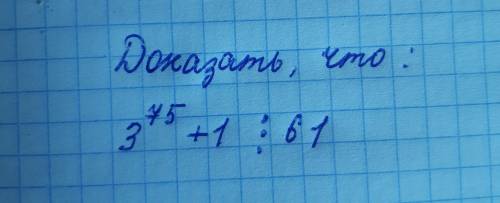 Доказать, что:
3^75 + 1 ⋮ 61